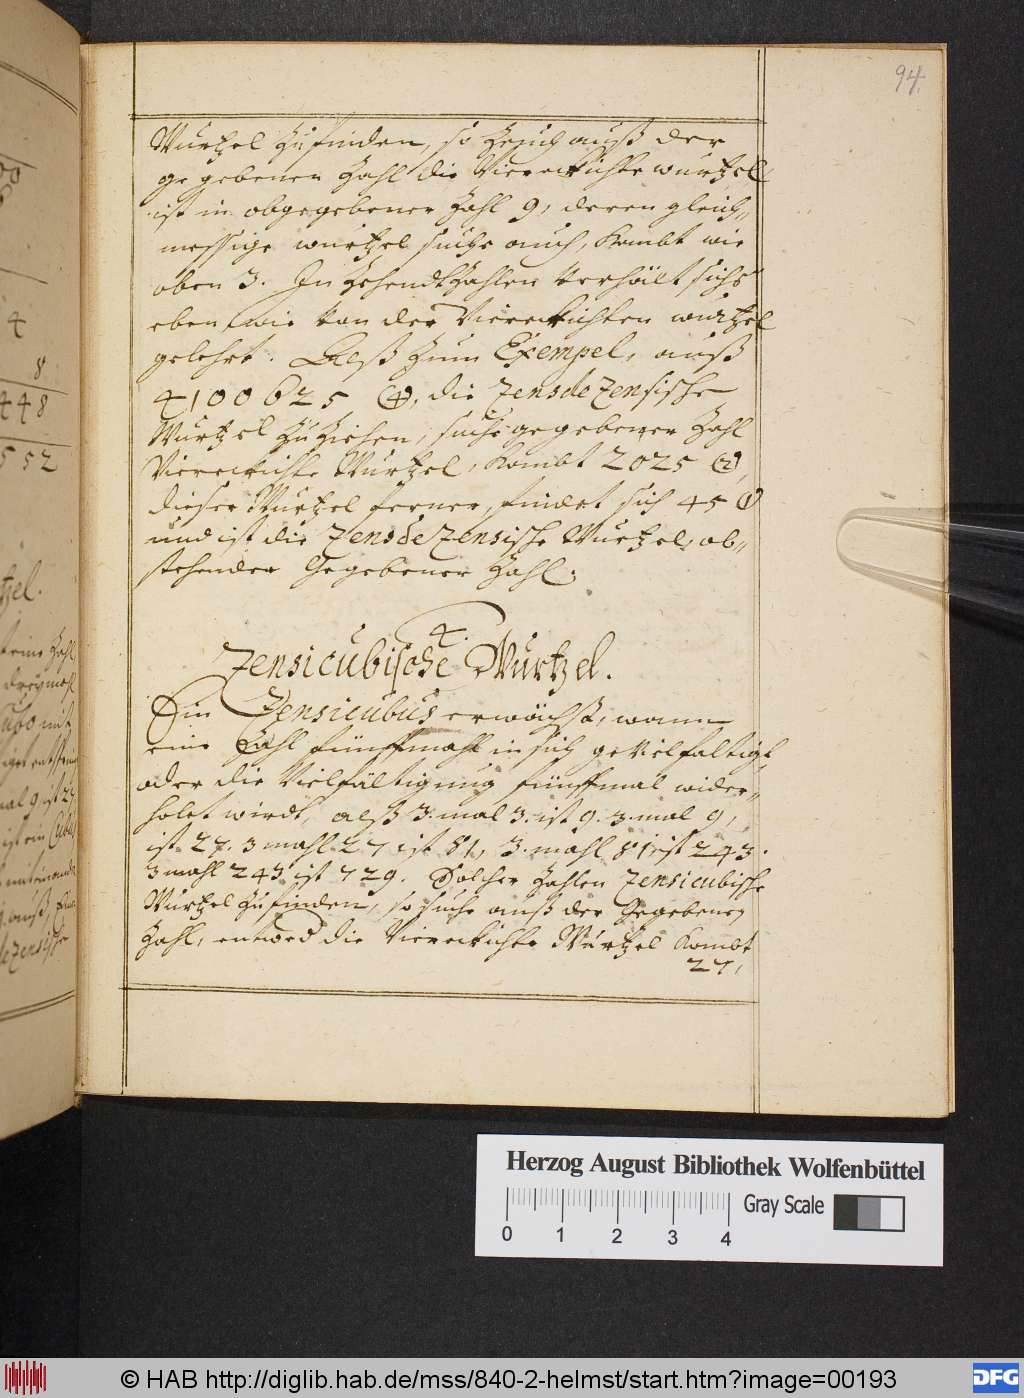 94.
Wurtzel zufinden, so zeuch auß der
gegebenen Zahl die Viereckichte wurtzel
ist in obgegebener Zahl 9, deren gleich-
messige wurtzel suche auch, kombt wie
oben 3. In Zehendt Zahlen verhält sichs
eben wie von der Viereckichten wurtzel
gelehrt. Alß zum Exempel, auß
4100625 (4), die Zensdezensische
Wurtzel zuziehen, suche gegebener Zahl
Viereckichte Wurtzel, kombt 2025 (2),
dieser Wurtzel ferner, findet sich 45 (1)
und ist die Zensdezensische Wurtzel, ob-
stehender Gegebener Zahl.
4.
Zensicubische Wurtzel.
Ein Zensicubus erwächst, wann
eine Zahl fünffmahl in sich gevielfältigt
oder die Vielfältigung fünffmal wider-
holet wirdt, alß 3. mal 3. ist 9. 3. mal 9,
ist 27. 3 mahl 27 ist 81, 3. mahl 81 ist 243.
3 mahl 243 ist 729. Solcher Zahlen Zensicubische
Wurtzel zufinden, so suche auß der Gegebenen
Zahl, entwed die Viereckichte Wurtzel kombt
27,
4
8
448
552
Herzog August Bibliothek Wolfenbüttel
0 1 2 3 4
Gray Scale
© HAB http://diglib.hab.de/mss/840-2-helmst/start.htm?image=00193
DFG